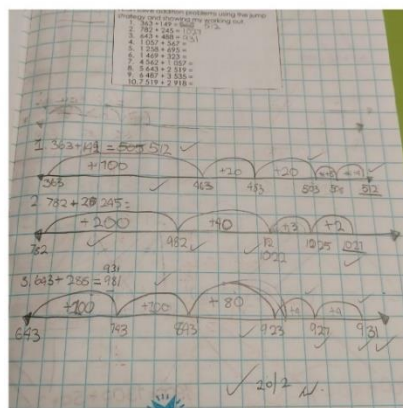 addition problems using the jump
strategy and showing my working out.
1. 363 + 149 = 512
2. 782 + 245 = 1027
3. 643 + 288 = 931
4. 1 057 + 567 =
5. 1 258 + 695 =
6. 1 469 + 323 =
7. 4 562 + 1 057 =
8. 5 643 + 2 519 =
9. 6 487 + 3 535 =
10. 7 519 + 2 918 =
1. 363+149 = 505 512
+100 +20 +20
363 463 483 503 508 512
2 782 + 28 245 =
+200 +40 +3 +2
782 982 1022 1025 1027
931
3, 643 + 288 = 981
+100 +100 +80 +4 +4
643 743 843 923 927 931
20/2